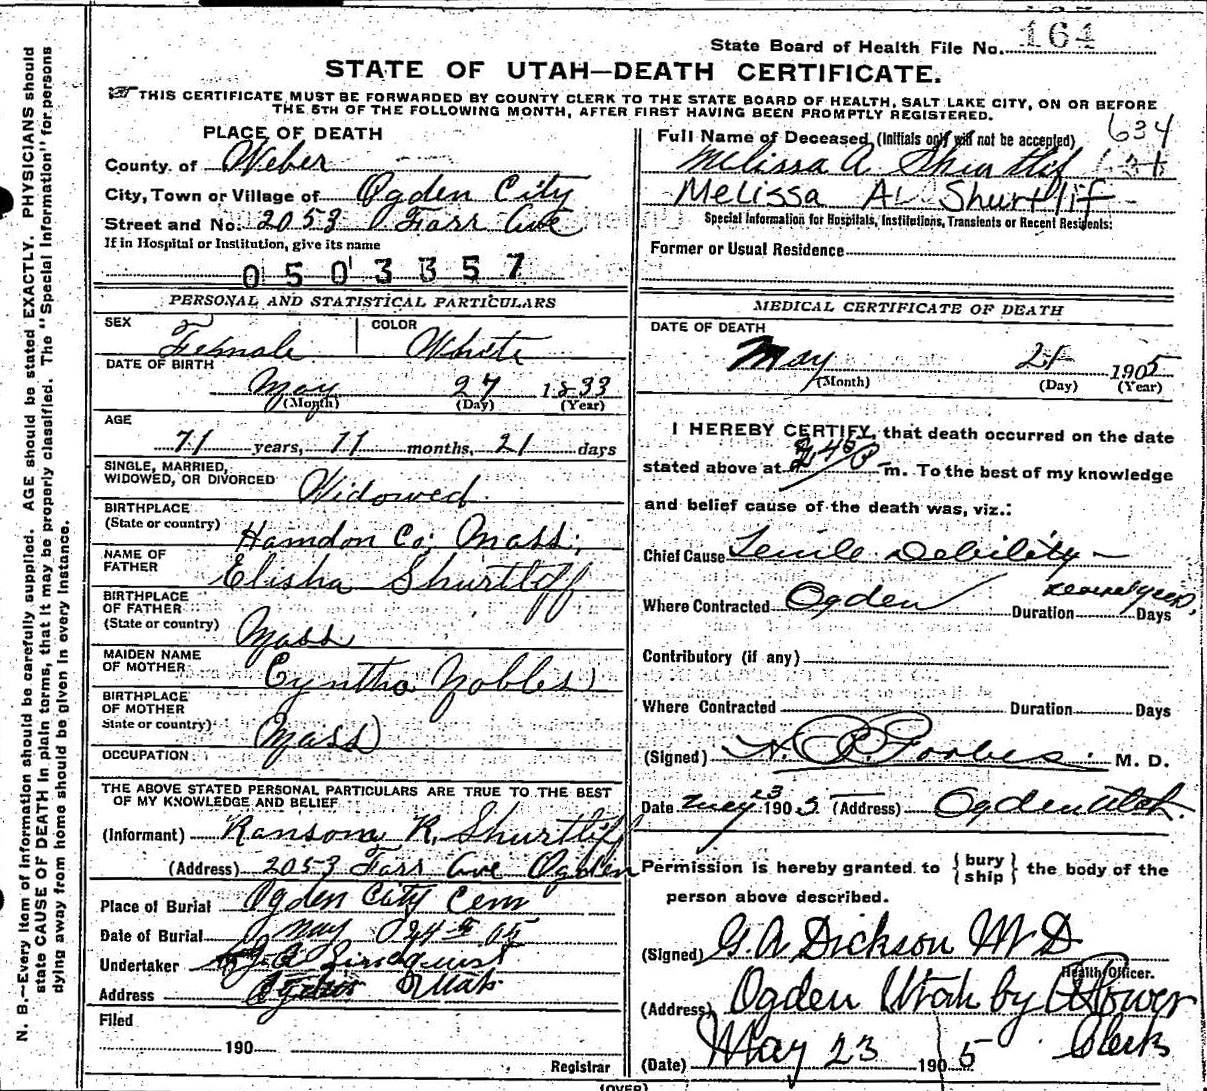 State Board of Health File No. 164
STATE OF UTAH—DEATH CERTIFICATE.
THIS CERTIFICATE MUST BE FORWARDED BY COUNTY CLERK TO THE STATE BOARD OF HEALTH, SALT LAKE CITY, ON OR BEFORE
THE 5TH OF THE FOLLOWING MONTH, AFTER FIRST HAVING BEEN PROMPTLY REGISTERED.
PLACE OF DEATH
County of Weber
City, Town or Village of Ogden City
Street and No. 2053 Farr Ave
If in Hospital or Institution, give its name
0503357
PERSONAL AND STATISTICAL PARTICULARS
SEX Female
COLOR White
DATE OF BIRTH
May 27 1833
(Month) (Day) (Year)
AGE
71 years, 11 months, 21 days
SINGLE, MARRIED,
WIDOWED, OR DIVORCED Widowed
BIRTHPLACE
(State or country) Hamdon Co; Mass;
NAME OF
FATHER Elisha Shurtliff
BIRTHPLACE
OF FATHER
(State or country) Mass
MAIDEN NAME
OF MOTHER Cyntha Nobles
BIRTHPLACE
OF MOTHER
State or country) Mass
OCCUPATION
THE ABOVE STATED PERSONAL PARTICULARS ARE TRUE TO THE BEST
OF MY KNOWLEDGE AND BELIEF
(Informant) Ransom R. Shurtliff
(Address) 2053 Farr Ave Ogden
Place of Burial Ogden City Cem
Date of Burial May 24th 05
Undertaker J. A. Lindquist
Address Ogden Utah
Filed
190
Registrar
634
Full Name of Deceased (Initials only will not be accepted)
Melissa A Shurtlif
Melissa A Shurtlif
Special Information for Hospitals, Institutions, Transients or Recent Residents:
Former or Usual Residence
MEDICAL CERTIFICATE OF DEATH
DATE OF DEATH
May 21 1905
(Month) (Day) (Year)
I HEREBY CERTIFY, that death occurred on the date
stated above at 45 P m. To the best of my knowledge
and belief cause of the death was, viz.:
Chief Cause Senile Debility
Where Contracted Ogden Duration several years, Days
Contributory (if any)
Where Contracted Duration Days
(Signed) H. Forbes M. D.
Date May 23 1905 (Address) Ogden Utah.
Permission is hereby granted to { bury ship } the body of the
person above described.
(Signed) G. A Dickson M D
Health Officer.
(Address) Ogden Utah by Power
Clerk
(Date) May 23 1905
(OVER)
N. B.—Every item of information should be carefully supplied. AGE should be stated EXACTLY. PHYSICIANS should
state CAUSE OF DEATH in plain terms, that it may be properly classified. The "Special Information" for persons
dying away from home should be given in every instance.